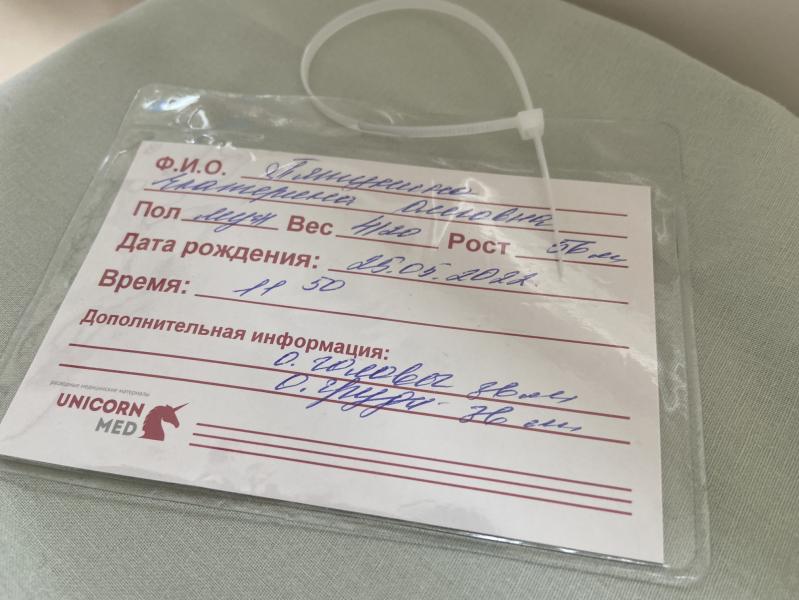 Ф.И.О. Пятунина
Екатерина
Пол муж Вес 4120 Рост 56 см
Дата рождения: 25.05.2022
Время: 11 50
Дополнительная информация:
О. головы 36 см
О. груди - 36 см
расходные медицинские материалы
UNICORN
MED